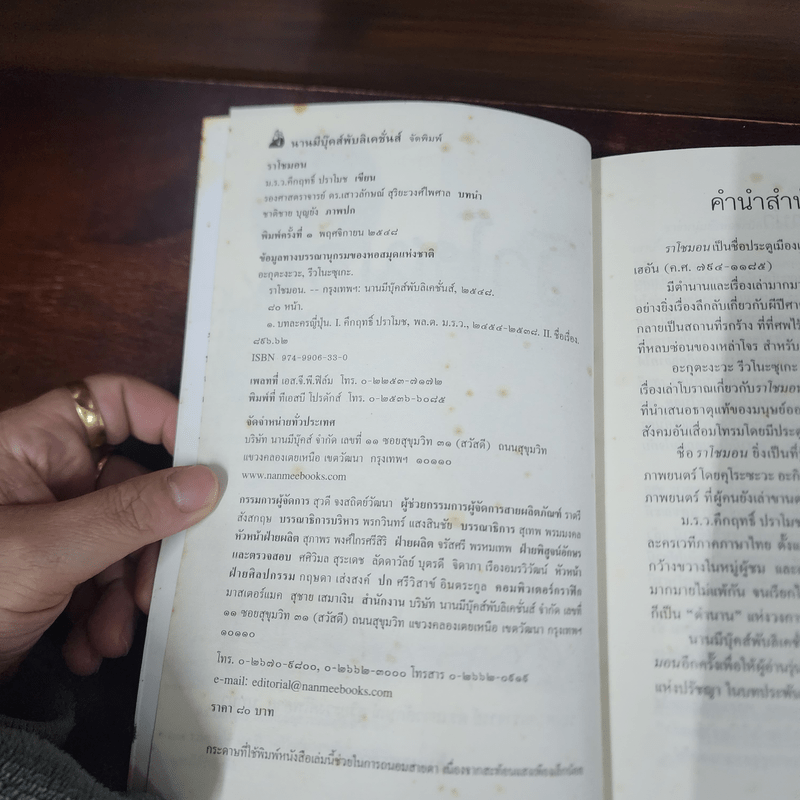 นานมีบุ๊คส์พับลิเคชั่นส์ จัดพิมพ์
ราโชมอน
ม.ร.ว.คึกฤทธิ์ ปราโมช เขียน
รองศาสตราจารย์ ดร.เสาวลักษณ์ สุริยะวงศ์ไพศาล บทนำ
ชาติชาย บุญยัง ภาพปก
พิมพ์ครั้งที่ ๑ พฤศจิกายน ๒๕๔๘
ข้อมูลทางบรรณานุกรมของหอสมุดแห่งชาติ
อะกุตะงะวะ, ริวโนะซุเกะ.
ราโชมอน. -- กรุงเทพฯ: นานมีบุ๊คส์พับลิเคชั่นส์, ๒๕๔๘.
๘๐ หน้า.
๑. บทละครญี่ปุ่น. I. คึกฤทธิ์ ปราโมช, พล.ต. ม.ร.ว., ๒๔๕๔-๒๕๓๘. II. ชื่อเรื่อง.
๘๙๖.๖๒
ISBN 974-9906-33-0
เพลทที่ เอส.จี.พี.ฟิล์ม โทร. ๐-๒๒๕๓-๗๑๗๒
พิมพ์ที่ ทีเอสบี โปรดักส์ โทร. ๐-๒๕๓๖-๖๐๘๕
จัดจำหน่ายทั่วประเทศ
บริษัท นานมีบุ๊คส์ จำกัด เลขที่ ๑๑ ซอยสุขุมวิท ๓๑ (สวัสดี) ถนนสุขุมวิท
แขวงคลองเตยเหนือ เขตวัฒนา กรุงเทพฯ ๑๐๑๑๐
www.nanmeebooks.com
กรรมการผู้จัดการ สุวดี จงสถิตย์วัฒนา ผู้ช่วยกรรมการผู้จัดการสายผลิตภัณฑ์ ราตรี
สังสกฤษ บรรณาธิการบริหาร พรกวินทร์ แสงสินชัย บรรณาธิการ สุเทพ พรมมงคล
หัวหน้าฝ่ายผลิต สุภาพร พงศ์ไกรศรีสิริ ฝ่ายผลิต จรัสศรี พรหมเทพ ฝ่ายพิสูจน์อักษร
และตรวจสอบ ศศิวิมล สุระเดช ลัดดาวัลย์ บุตรดี จิดาภา เรืองอมรวิวัฒน์ หัวหน้า
ฝ่ายศิลปกรรม กฤษดา เส่งสงค์ ปก ศรีวิสาข์ อินตระกูล คอมพิวเตอร์กราฟิก
มาสเตอร์แมค สุชาย เสมาเงิน สำนักงาน บริษัท นานมีบุ๊คส์พับลิเคชั่นส์ จำกัด เลขที่
๑๑ ซอยสุขุมวิท ๓๑ (สวัสดี) ถนนสุขุมวิท แขวงคลองเตยเหนือ เขตวัฒนา กรุงเทพฯ
๑๐๑๑๐
โทร. ๐-๒๖๗๐-๙๘๐๐, ๐-๒๖๖๒-๓๐๐๐ โทรสาร ๐-๒๖๖๒-๐๙๑๙
e-mail: editorial@nanmeebooks.com
ราคา ๘๐ บาท
กระดาษที่ใช้พิมพ์หนังสือเล่มนี้ช่วยในการถนอมสายตา เนื่องจากสะท้อนแสงเพียงเล็กน้อย
คำนำสำน
ราโชมอน เป็นชื่อประตูเมือง
เฮอัน (ค.ศ. ๗๙๔-๑๑๘๕)
มีตำนานและเรื่องเล่ามากมา
อย่างยิ่งเรื่องลึกลับเกี่ยวกับผีปีศา
กลายเป็นสถานที่รกร้าง ที่ที่ศพไร้
ที่หลบซ่อนของเหล่าโจร สำหรับ
อะกุตะงะวะ ริวโนะซุเกะ
เรื่องเล่าโบราณเกี่ยวกับราโชมอน
ที่นำเสนอธาตุแท้ของมนุษย์ออ
สังคมอันเสื่อมโทรมโดยมีประต
ชื่อ ราโชมอน ยิ่งเป็นที่
ภาพยนตร์ โดยคุโระซะวะ อะกิ
ภาพยนตร์ ที่ผู้คนยังเล่าขานต
ม.ร.ว.คึกฤทธิ์ ปราโม
ละครเวทีภาคภาษาไทย ตั้งแ
กว้างขวางในหมู่ผู้ชม และ
มากมายไม่แพ้กัน จนเรียกไ
ก็เป็น “ตำนาน” แห่งวงกา
นานมีบุ๊คส์พับลิเคชั่น
มอนอีกครั้งเพื่อให้ผู้อ่านรุ่น
แห่งปรัชญา ในบทประพัน